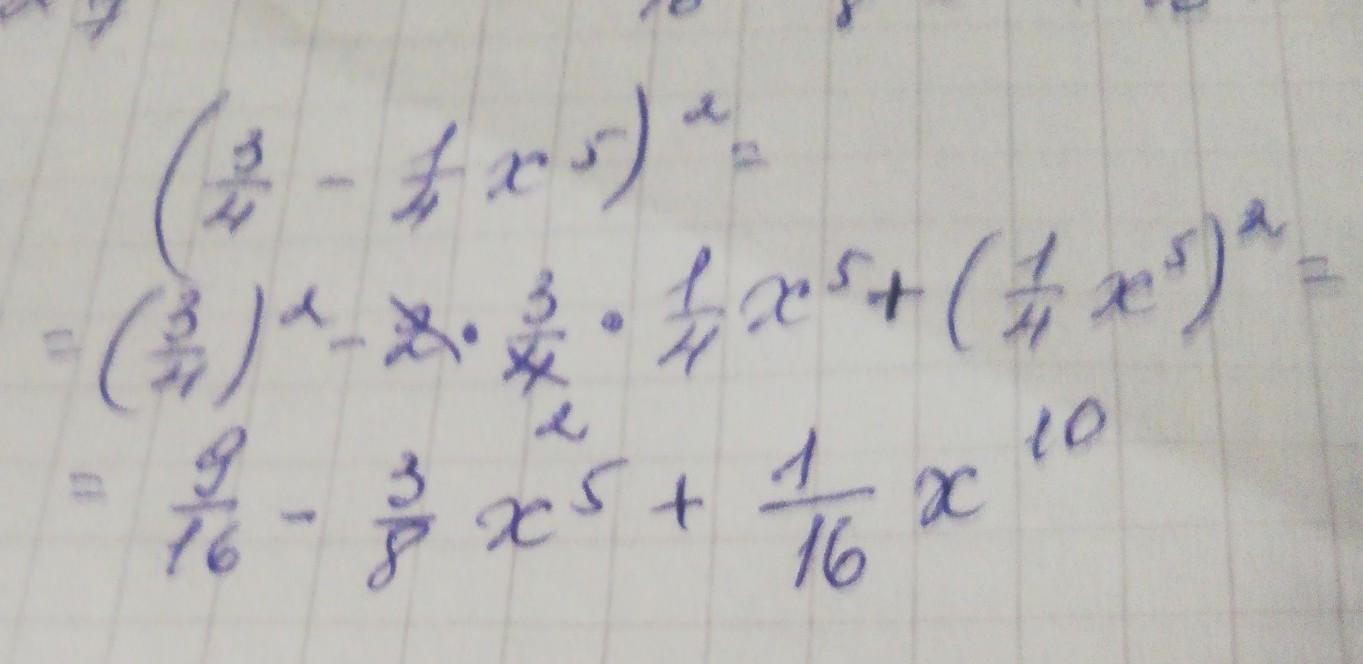 (3/4 - 1/4 x⁵)² =
= (3/4)² - 2 · 3/4 · 1/4 x⁵ + (1/4 x⁵)² =
2
= 9/16 - 3/8 x⁵ + 1/16 x¹⁰